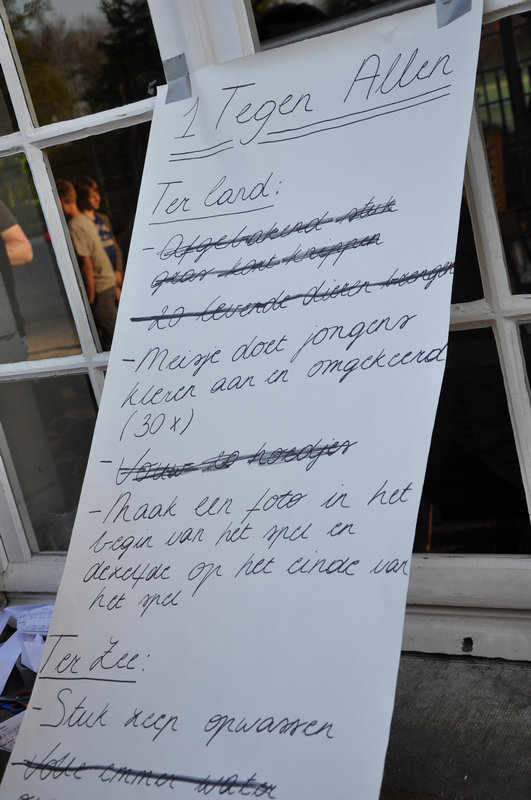 1 Tegen Allen
Ter land:
- Afgebakend stuk
gras kort knippen
- 20 levende dieren brengen
- Meisje doet jongens
kleren aan en omgekeerd
(30x)
- Vouw 20 hoedjes
- Maak een foto in het
begin van het spel en
dezelfde op het einde van
het spel
Ter Zee:
- Stuk zeep opwassen
- Volle emmer water